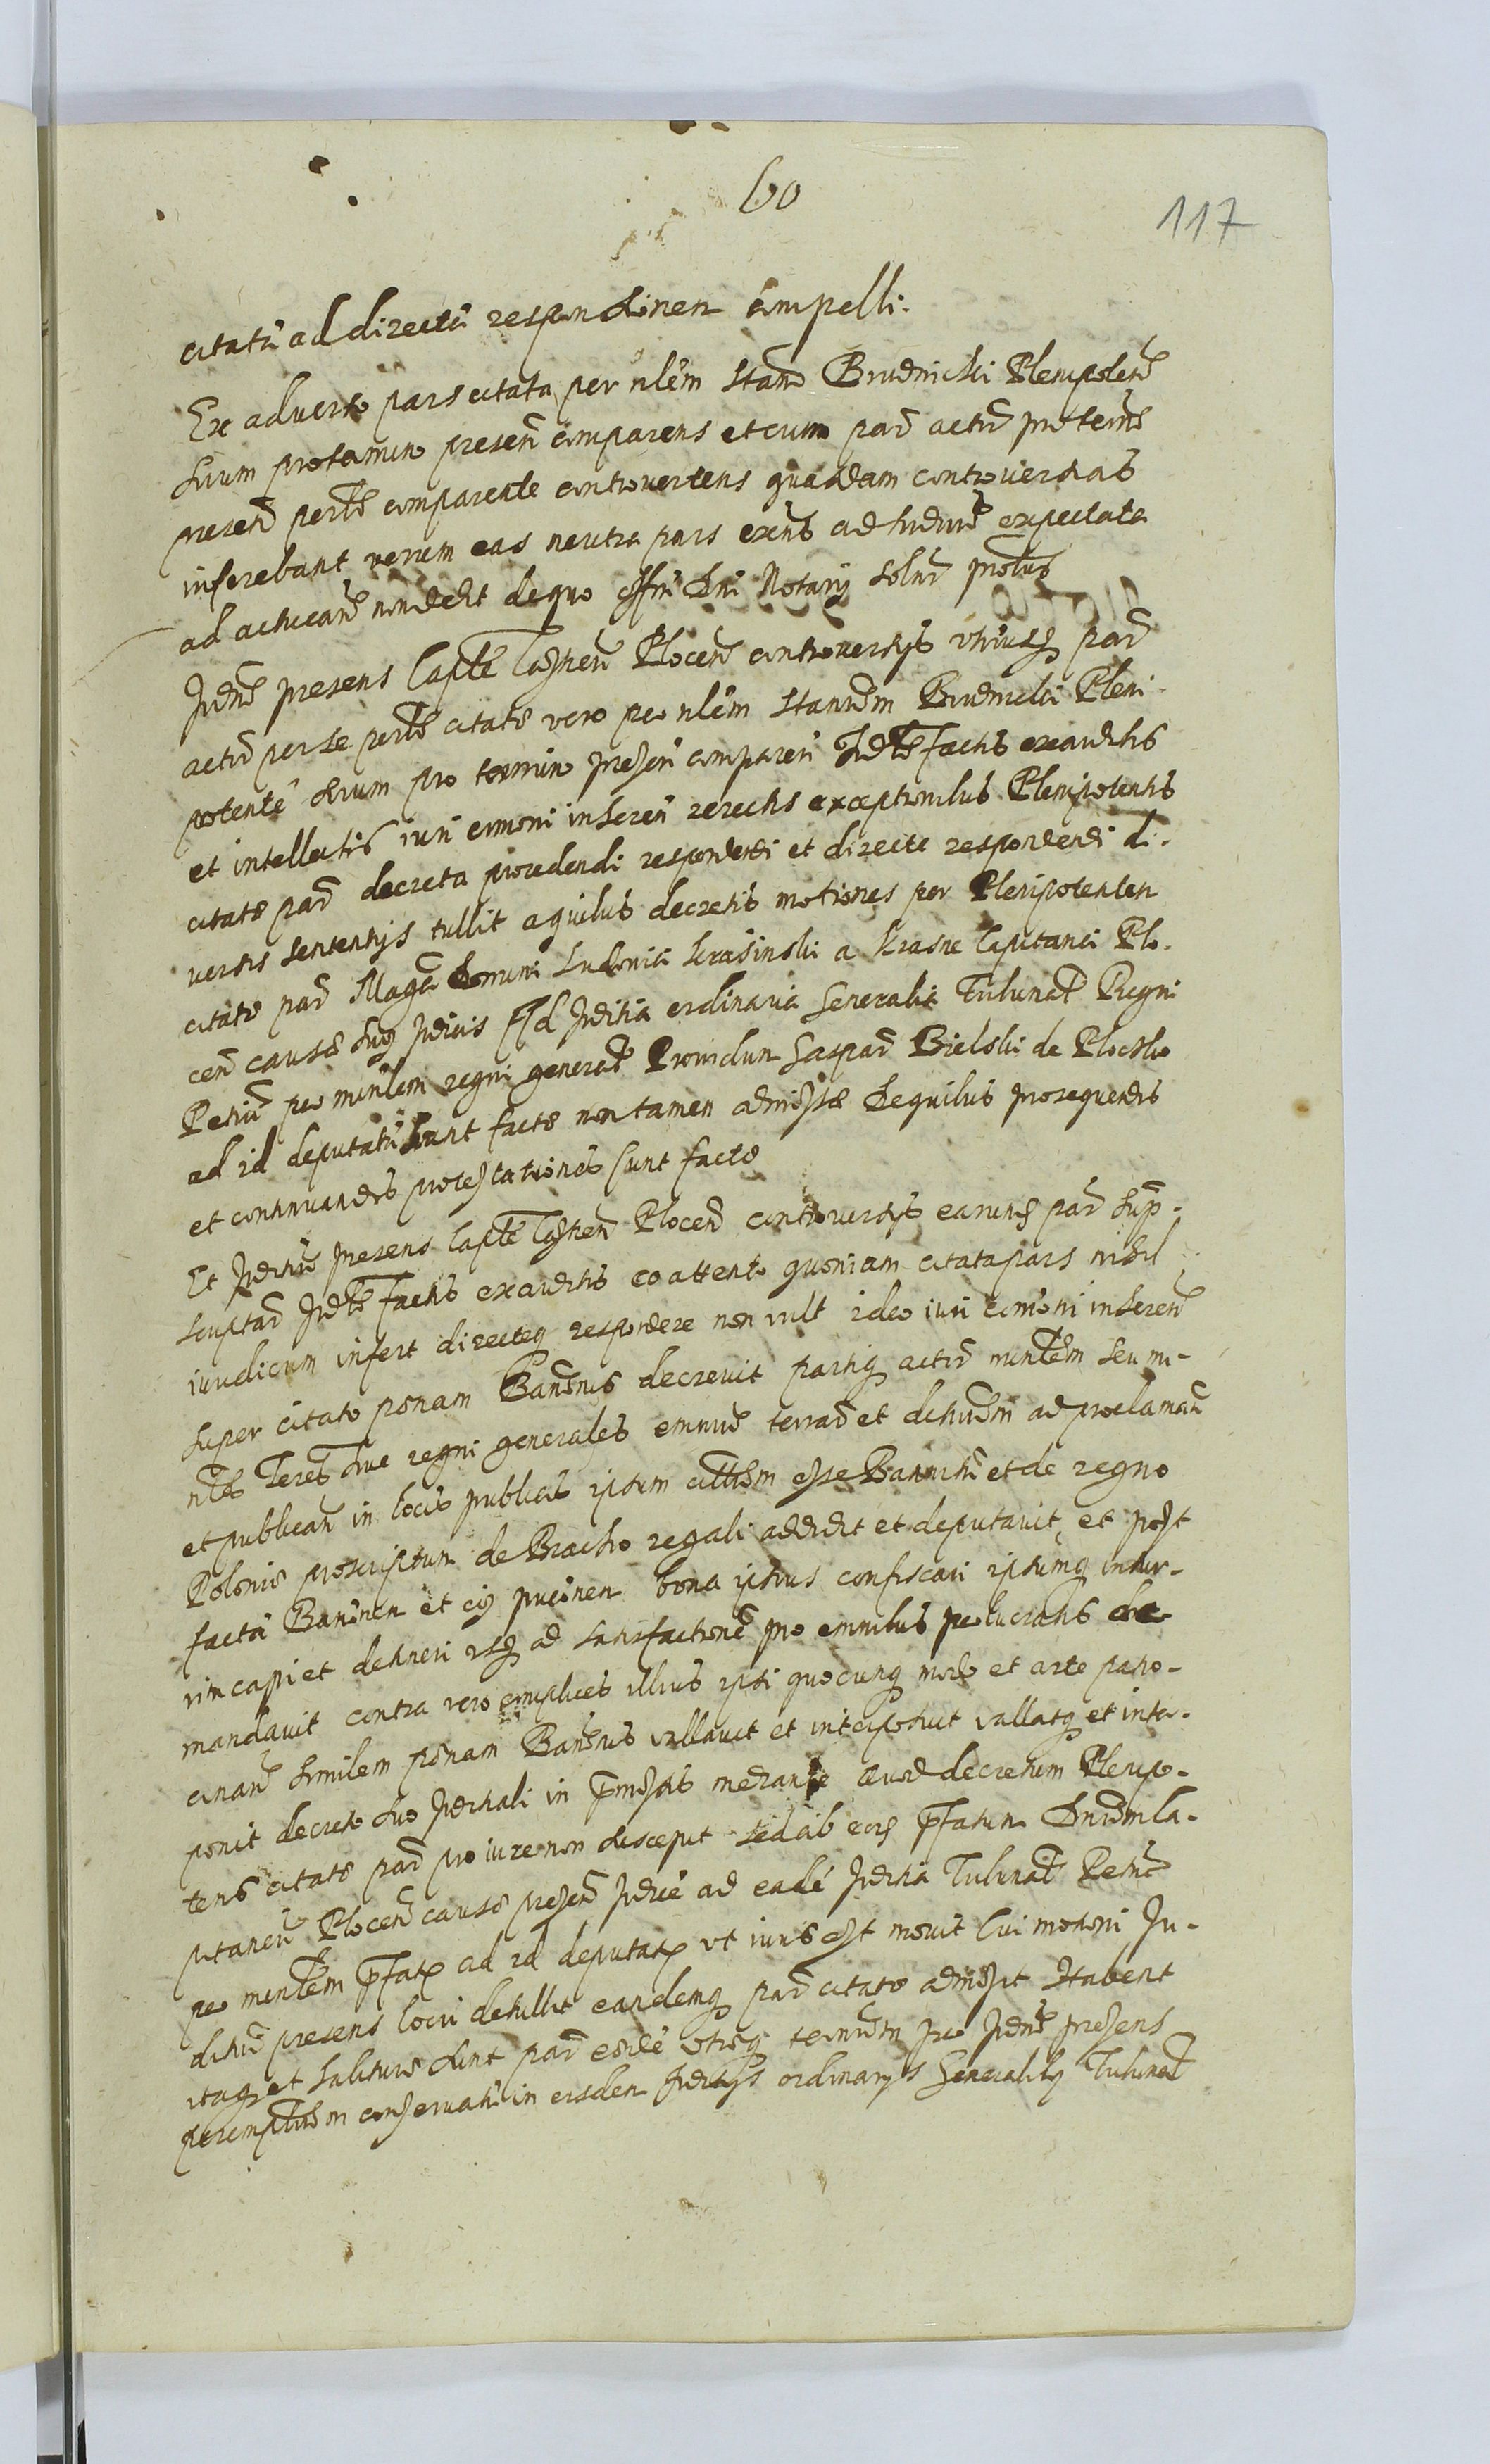 60
117
citatū ad directū responsionem compelli.
Ex adverso pars citata per nlem Stan Brudnicki Plenipolen
suum pro termino presen comparens et cum par actr pro termo
presen perte comparente controvertens quasdam controversias
inferebant verum eas neutra pars exens ad Iudiciu expectata
ad acticand non dedit de quo offm Dni Notarij solur protus
Judm presens Capte Castren Plocen controversijs utriusq par
actr per se perte citate vero per nlem Stanisl Brudnicki Pleni-
potente suum pro termino presen comparen Judte factis exauditis
et intellectis iuri comoni inseren reiectis exceptionibus Plenipotentis
citate par decreta procedendi respondendi et directe respondendi di-
versis sententijs tullit a quibus decretis motiones per Plenipotentem
citate par Magci Domini Ludovici Krasinski a Krasne Capitanei Plo-
cen cause huj Judicis Ad Juditia ordinaria Generalia Tribunal Regni
Petric per minlem regni general Providum Gaspar Bielski de Plocsko
ad id deputatū sunt facte non tamen admisse De quibus prosequendis
et continuandis protestationes sunt facte
Et Juditiū presens Capte Castren Plocen controversijs earund par sup-
scriptar Judte factis exauditis eo attento quoniam citata pars nihil
iuridicum infert directeq respondere non vult ideo iuri comoni inseren
super citato penam Bannis decrevit partiq actr minlem seu mi-
nles Terres sive regni generales omniū terrar et districtm ad proclaman
et publican in locis publicis ipsum citatm esse Bannitū et de regno
Polonie proscriptum de Brachio regali addidit et deputavit, et post
factā Bannnem et ej puconem bona ipsius confiscari ipsumq indur-
rim capi et detineri usq ad satisfactione pro omnibus perlucratis de-
mandavit contra vero complices illius ipsi quocunq modo et arte patro-
cinan similem penam Bannis vallavit et interposuit vallatq et inter-
ponit decreto suo Juditiali in pmissis mediante Quod decretum Plenipo-
tens citate par pro iure non suscepit sed ab eog pfatum Dnm Ca-
pitaneū Plocen cause presen Judice ad eadē Juditia Tribunal Petric
per minlem pfatp ad id deputatp ut iuris est movit Cui motioni Ju-
ditiū presens locū detullit eandemq par citate admisit Habent
itaq et habiture sunt par eede utreq terminm pro Judm presens
peremptorm conservatū in eisdem Juditijs ordinarijs Generalibq Tribunal